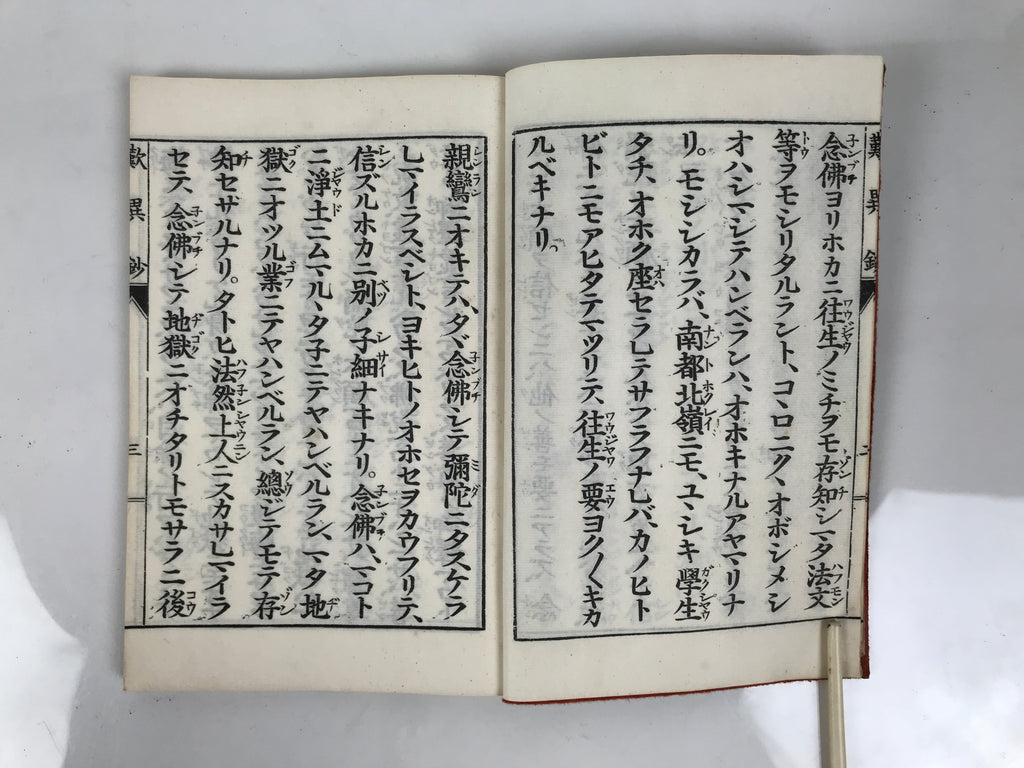 歎異鈔
念佛ヨリホカニ往生ノミチヲモ存知シマタ法文
等ヲモシリタルラント、コヽロニクヽオボシメシ
オハシマシテハンベランハ、オホキナルアヤマリナ
リ。モシシカラバ、南都北嶺ニモ、ユヽシキ學生
タチ、オホク座セラレテサフラフナレバ、カノヒト
ビトニモアヒタテマツリテ、往生ノ要ヨク〳〵キカ
ルベキナリ。
親鸞ニオキテハ、タヾ念佛シテ彌陀ニタスケラ
レマイラスベシト、ヨキヒトノオホセヲカウフリテ、
信ズルホカニ別ノ子細ナキナリ。念佛ハ、マコト
ニ淨土ニムマルヽタ子ニテヤハンベルラン、マタ地
獄ニオツル業ニテヤハンベルラン、總ジテモテ存
知セサルナリ。タトヒ法然上人ニスカサレマイラ
セテ、念佛シテ地獄ニオチタリトモサラニ後
歎異鈔
三